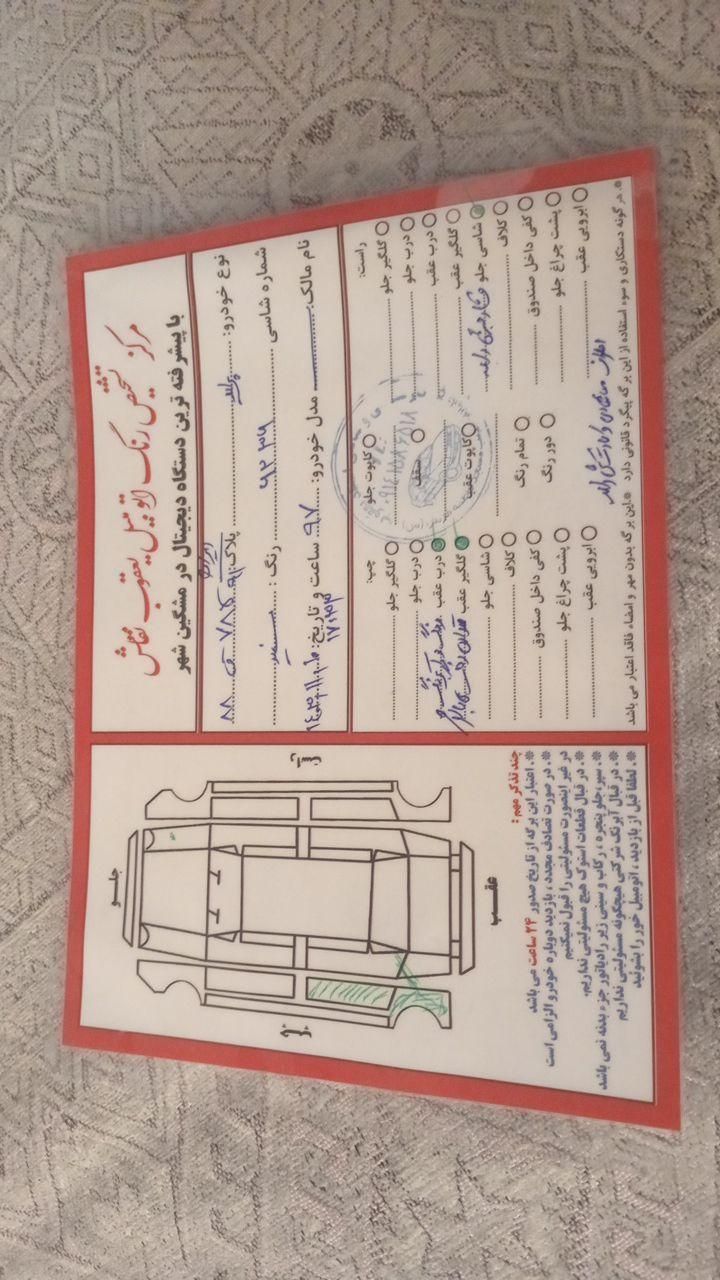 مرکز تشخیص رنگ اتومبیل یعقوب نقاش
با پیشرفته ترین دستگاه دیجیتال در مشگین شهر
نوع خودرو: پراید پلاک: ۷۸۵ ۸۸
شماره شاسی ۹۲۳۶ رنگ: سفید
نام مالک مدل خودرو: ۹۷ ساعت و تاریخ:
۱۷:۳۳
راست:
گلگیر جلو
درب جلو
درب عقب
گلگیر عقب
شاسی جلو
کلاف
کفی داخل صندوق
پشت چراغ جلو
ابرویی عقب
کاپوت جلو
سقف
کاپوت عقب
تمام رنگ
دور رنگ
چپ:
گلگیر جلو
درب جلو
درب عقب
گلگیر عقب
شاسی جلو
کلاف
کفی داخل صندوق
پشت چراغ جلو
ابرویی عقب
*. هر گونه دستکاری و سوء استفاده از این برگه پیگرد قانونی دارد *.این برگه بدون مهر و امضاء فاقد اعتبار می باشد
جلو
راست
چپ
عقب
چند تذکر مهم :
*. اعتبار این برگه از تاریخ صدور ۲۴ ساعت می باشد
*. در صورت تصادف مجدد، بازدید دوباره خودرو الزامی است
در غیر اینصورت مسئولیتی را قبول نمیکنیم
*. در قبال قطعات استوک هیچ مسئولیتی نداریم.
*. سپر، جلو پنجره ، رکاب و سینی زیر رادیاتور جزء بدنه نمی باشد
*. در قبال آبرنگ شرکتی هیچگونه مسئولیتی نداریم
*. لطفا قبل از بازدید ، اتومبیل خور را بشوئید